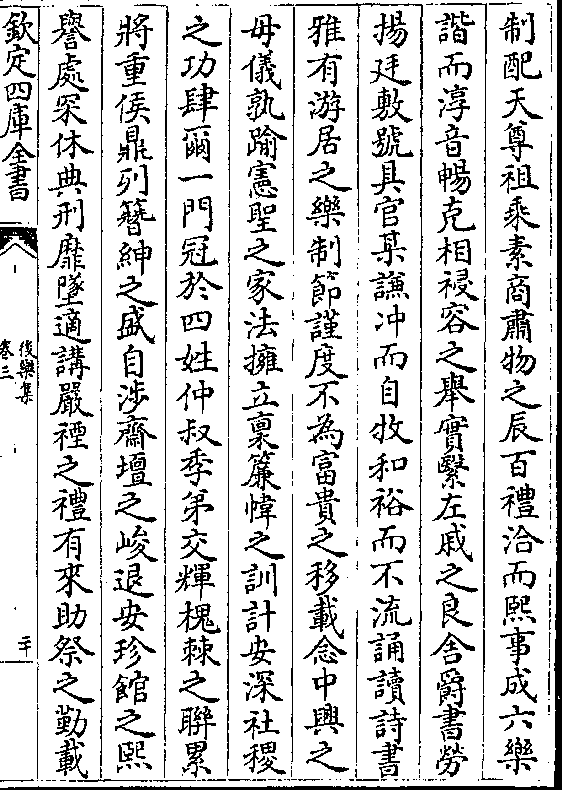 制配天尊祖乘素商肅物之辰百禮洽而熙事成六樂
諧而淳音暢克相祲容之舉實繫左戚之良舍爵書勞
揚廷敷號具官某謙冲而自牧和裕而不流誦讀詩書
雅有游居之樂制節謹度不為富貴之移載念中興之
母儀孰踰憲聖之家法擁立稟簾幃之訓計安深社稷
之功肆爾一門冠於四姓仲叔季弟交輝槐棘之聯累
將重侯鼎列簪紳之盛自涉齋壇之峻退安珍館之熙
譽處罙休典刑靡墜適講嚴禋之禮有來助祭之勤載
欽定四庫全書
後樂集
卷三
二十